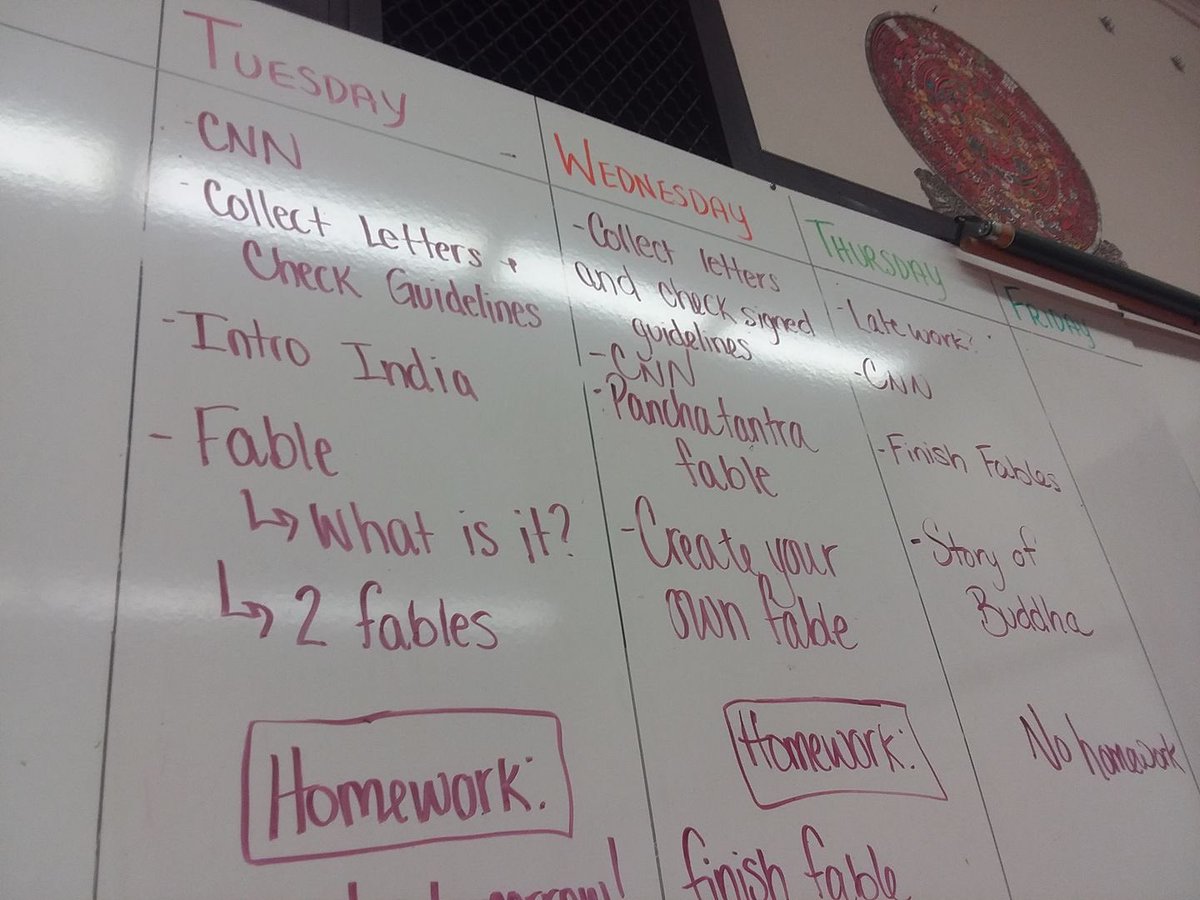 TUESDAY
- CNN
- Collect Letters +
Check Guidelines
- Intro India
- Fable
↳ What is it?
↳ 2 fables
Homework:
WEDNESDAY
- Collect letters
and check signed
guidelines
- CNN
- Panchatantra
fable
- Create your
own fable
Homework:
finish fable
THURSDAY
- Late work?
- CNN
- Finish Fables
- Story of
Buddha
No homework
FRIDAY